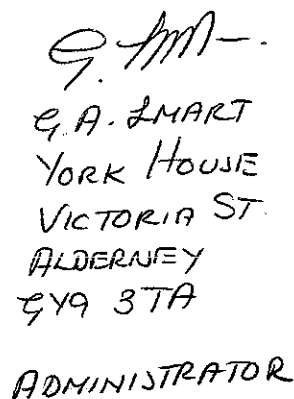 G. A. SMART
YORK HOUSE
VICTORIA ST.
ALDERNEY
GY9 3TA
ADMINISTRATOR